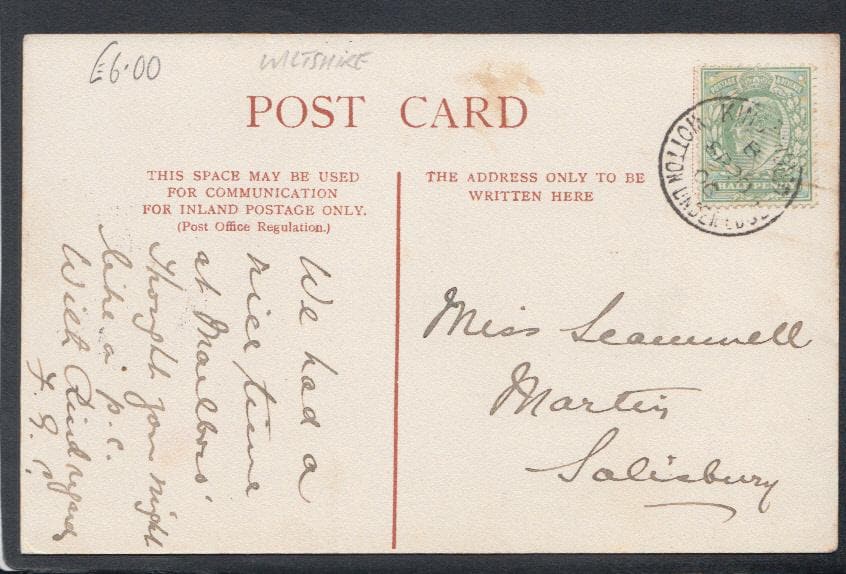 £6.00
WILTSHIRE
POST CARD
THIS SPACE MAY BE USED
FOR COMMUNICATION
FOR INLAND POSTAGE ONLY.
(Post Office Regulation.)
THE ADDRESS ONLY TO BE
WRITTEN HERE
HALF PENNY
WOTTON UNDER EDGE
We had a
nice time
at Marlboro'
Thought you might
like a p.c.
With Kind regards
Miss Scammell
Martin
Salisbury